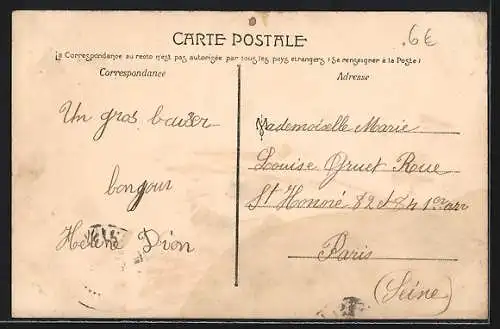 6€
CARTE POSTALE
La Correspondance au recto n'est pas autorisée par tous les pays étrangers (Se renseigner à la Poste)
Correspondance
Adresse
Un gros baiser
bonjour
Hélène Dion
Mademoiselle Marie
Louise Gruet Rue
St Honoré 82 et 84 1er arr
Paris
(Seine)